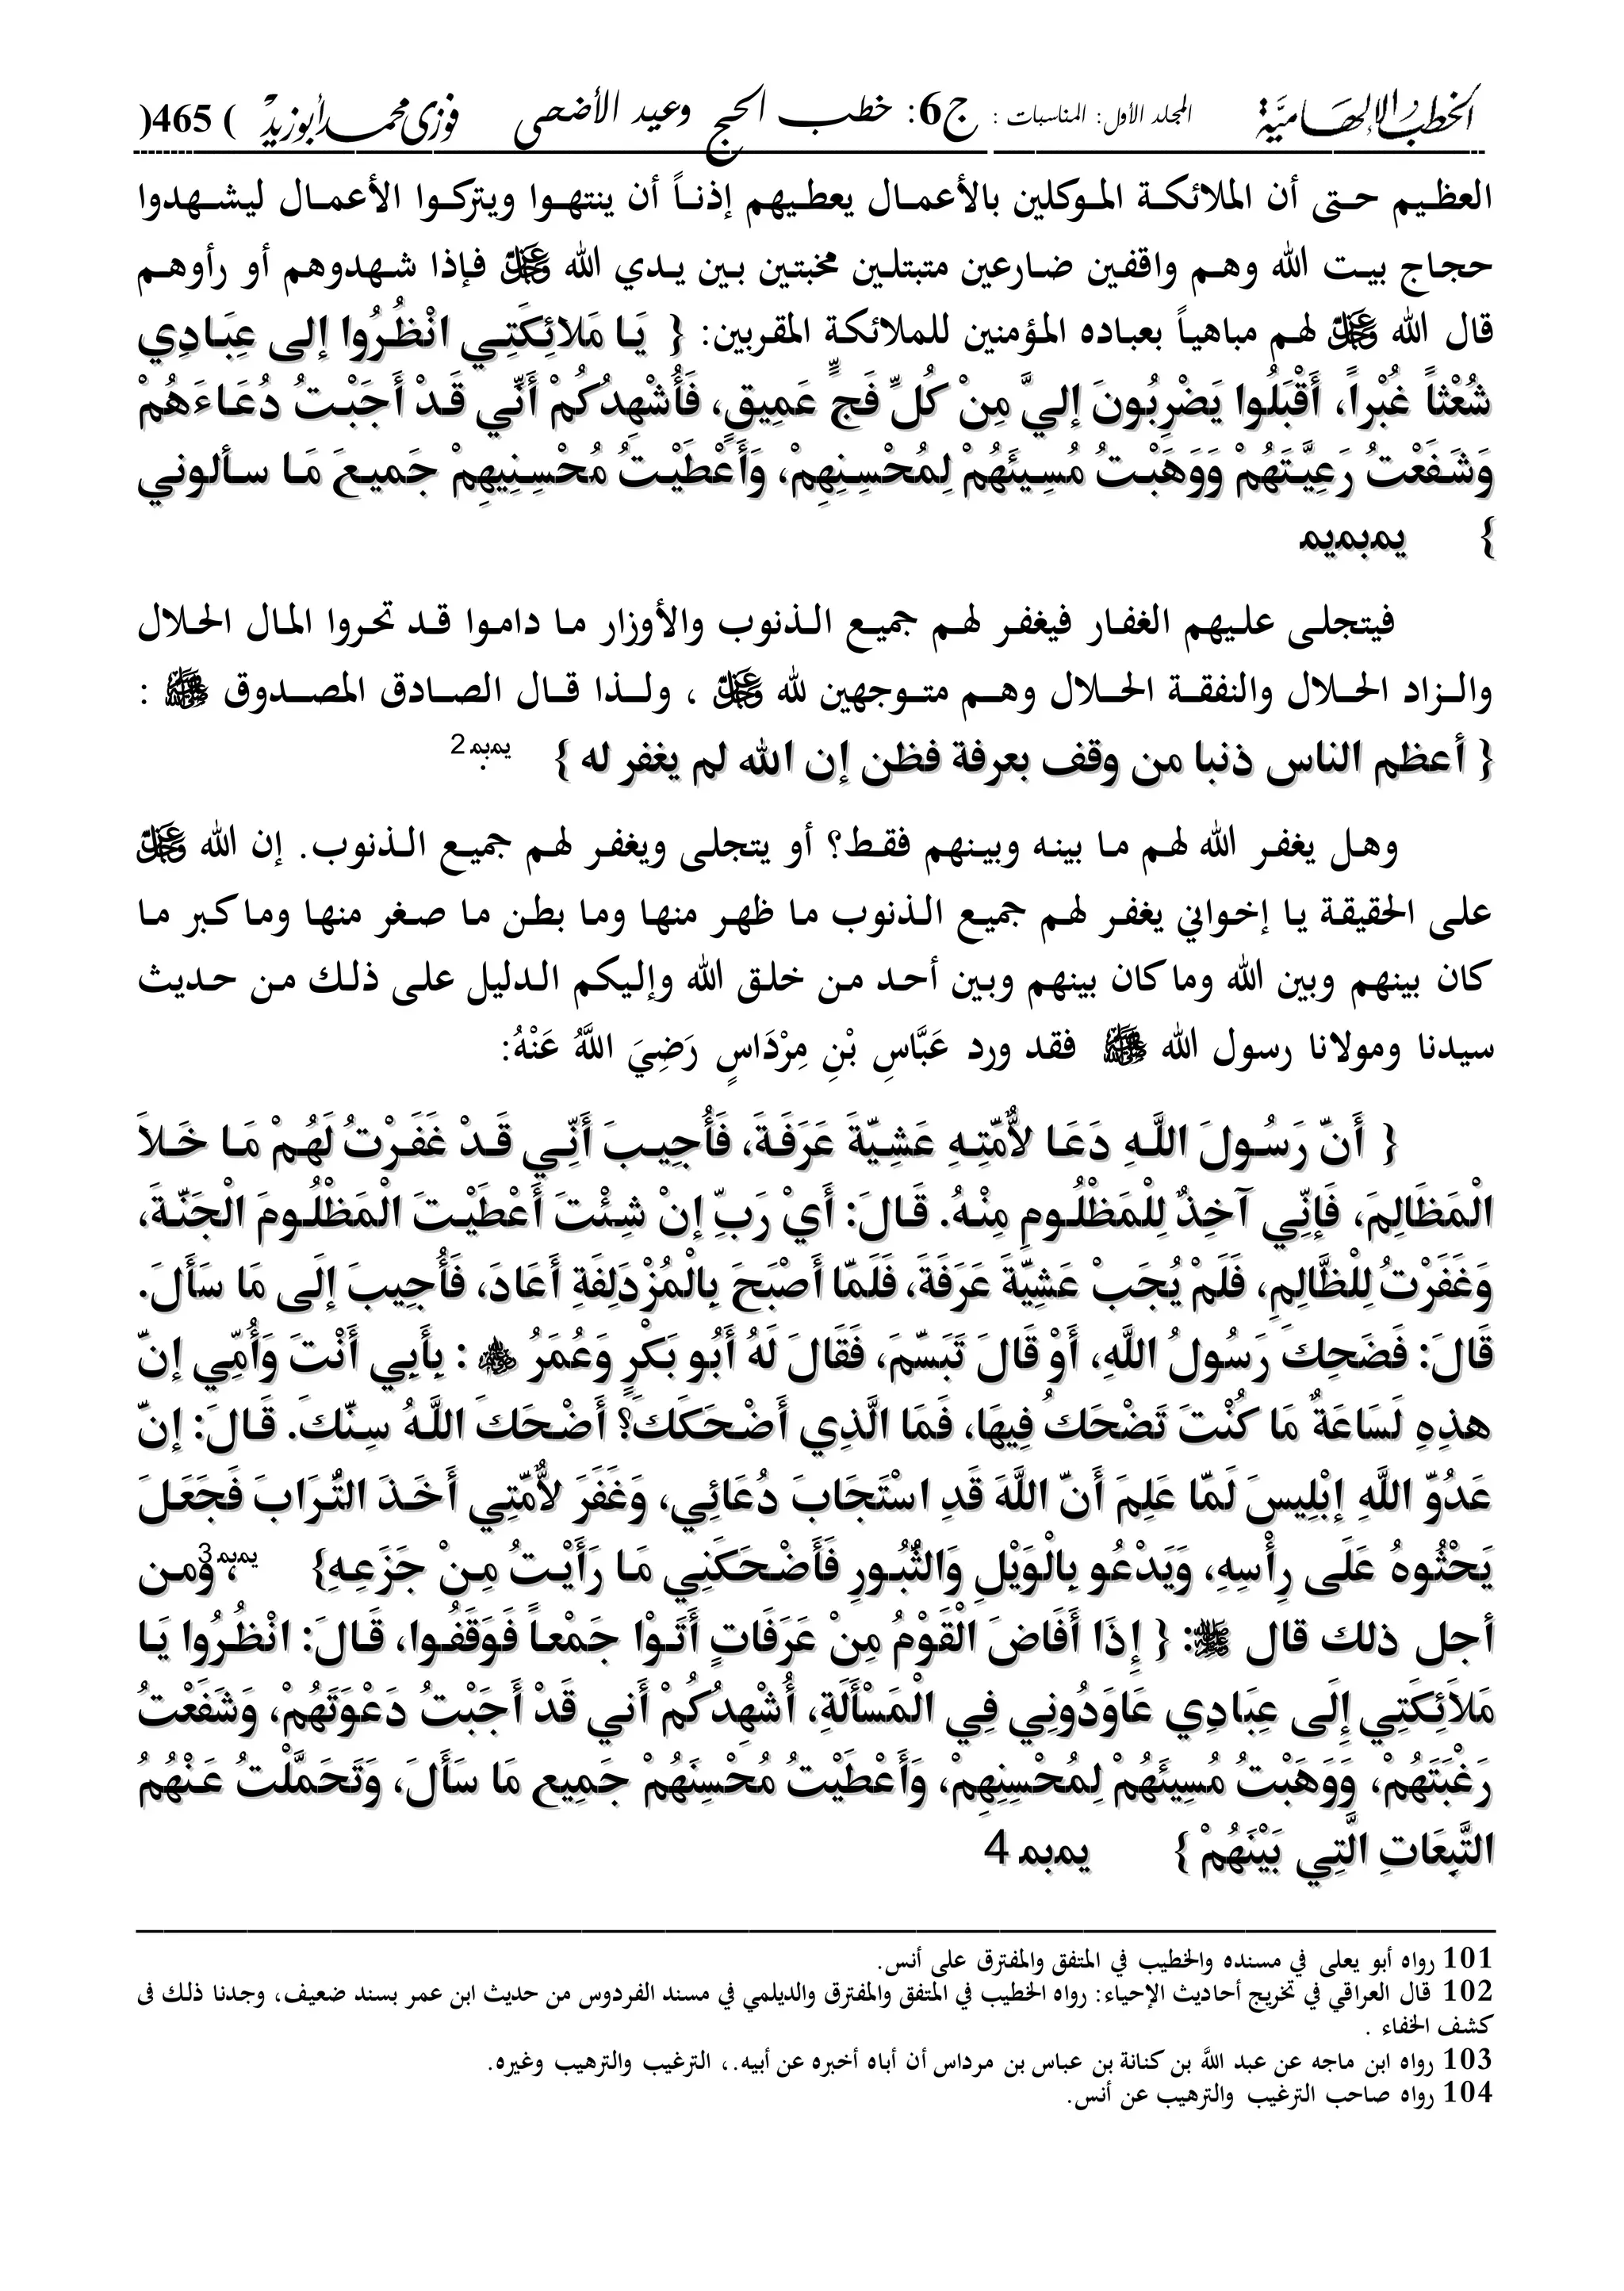 الخطب الإلهامية المجلد الأول: المناسبات : ج6: خطب الحج وعيد الأضحى فوزى محمد أبوزيد ( 465)
العظيم حتى أن الملائكة الموكلين بالأعمال يعطيهم إذناً أن ينتهوا ويتركوا الأعمال ليشهدوا
حجاج بيت الله وهم واقفين ضارعين متبتلين مخبتين بين يدي الله عز وجل فإذا شهدوهم أو رأوهم
قال الله عز وجل لهم مباهياً بعباده المؤمنين للملائكة المقربين: { يَا مَلائِكَتِي انْظُرُوا إلى عِبَادِي
شُعْثاً غُبْراً، أَقْبَلُوا يَضْرِبُونَ إليَّ مِنْ كُلِّ فَجٍّ عَمِيقٍ، فَأُشْهِدُكُمْ أَنِّي قَدْ أَجَبْتُ دُعَاءَهُمْ
وَشَفَعْتُ رَعِيَّتَهُمْ وَوَهَبْتُ مُسِيئَهُمْ لِمُحْسِنِهِمْ، وَأَعْطَيْتُ مُحْسِنِيهِمْ جَميعَ مَا سألوني
} يمبميم
فيتجلى عليهم الغفار فيغفر لهم جميع الذنوب والأوزار ما داموا قد تحروا المال الحلال
والزاد الحلال والنفقة الحلال وهم متوجهين لله عز وجل ، ولذا قال الصادق المصدوق ﷺ :
{ أعظم الناس ذنبا من وقف بعرفة فظن إن الله لم يغفر له } يمبم2 .
وهل يغفر الله لهم ما بينه وبينهم فقط؟ أو يتجلى ويغفر لهم جميع الذنوب. إن الله عز وجل
على الحقيقة يا إخواني يغفر لهم جميع الذنوب ما ظهر منها وما بطن ما صغر منها وما كبر ما
كان بينهم وبين الله وما كان بينهم وبين أحد من خلق الله وإليكم الدليل على ذلك من حديث
سيدنا ومولانا رسول الله ﷺ فقد ورد عَبَّاسِ بْنِ مِرْدَاسٍ رَضِيَ اللَّهُ عَنْهُ:
{ أَنّ رَسُولَ اللَّهِ دَعَا لأُمّتِهِ عَشِيّةَ عَرَفَةَ، فَأُجِيبَ أَنّي قَدْ غَفَرْتُ لَهُمْ مَا خَلاَ
الْمَظَالِمَ، فَإنّي آخِذٌ لِلْمَظْلُومِ مِنْهُ. قَالَ: أَيْ رَبِّ إنْ شِئْتَ أَعْطَيْتَ الْمَظْلُومَ الْجَنّةَ،
وَغَفَرْتُ لِلْظَّالِمِ، فَلَمْ يُجَبْ عَشِيّةَ عَرَفَةَ، فَلَمّا أَصْبَحَ بِالْمُزْدَلِفَةِ أَعَادَ، فَأُجِيبَ إلَى مَا سَأَلَ.
قَالَ: فَضَحِكَ رَسُولُ اللَّهِ، أَوْ قَالَ تَبَسّمَ، فَقَالَ لَهُ أَبُو بَكْرٍ وَعُمَرُ : بِأَبِي أَنْتَ وَأُمّي إنّ
هذِهِ لَسَاعَةٌ مَا كُنْتَ تَضْحَكُ فِيهَا، فَمَا الَّذِي أَضْحَكَكَ؟ أَضْحَكَ اللَّهُ سِنّكَ. قَالَ: إنّ
عَدُوّ اللَّهِ إبْلِيسَ لَمّا عَلِمَ أَنّ اللَّهَ قَدِ اسْتَجَابَ دُعَائِي، وَغَفَرَ لأُمّتِي أَخَذَ التُّرَابَ فَجَعَلَ
يَحْثُوهُ عَلَى رِأْسِهِ، وَيَدْعُو بِالْوَيْلِ وَالثُّبُورِ فَأَضْحَكَنِي مَا رَأَيْتُ مِنْ جَزَعِهِ} يمبم3، ومن
أجل ذلك قال ﷺ: { إِذَا أَفَاضَ الْقَوْمُ مِنْ عَرَفَاتٍ أَتَوْا جَمْعاً فَوَقَفُوا، قَالَ: انْظُرُوا يَا
مَلاَئِكَتِي إِلَى عِبَادِي عَاوَدُونِي فِي الْمَسْأَلَةِ، أُشْهِدُكُمْ أَني قَدْ أَجَبْتُ دَعْوَتَهُمْ، وَشَفَعْتُ
رَغْبَتَهُمْ، وَوَهَبْتُ مُسِيئَهُمْ لِمُحْسِنِهِمْ، وَأَعْطَيْتُ مُحْسِنَهُمْ جَمِيع مَا سَأَلَ، وَتَحَمَّلْتُ عَنْهُمُ
التَّبِعَاتِ الَّتِي بَيْنَهُمْ } يمبم4
101 رواه أبو يعلى في مسنده والخطيب في المتفق والمفترق على أنس.
102 قال العراقي في تخريج أحاديث الإحياء: رواه الخطيب في المتفق والمفترق والديلمي في مسند الفردوس من حديث ابن عمر بسند ضعيف، وجدنا ذلك فى
كشف الخفاء .
103 رواه ابن ماجه عن عبد اللَّه بن كنانة بن عباس بن مرداس أن أباه أخبره عن أبيه.، الترغيب والترهيب وغيره.
104 رواه صاحب الترغيب والترهيب عن أنس.